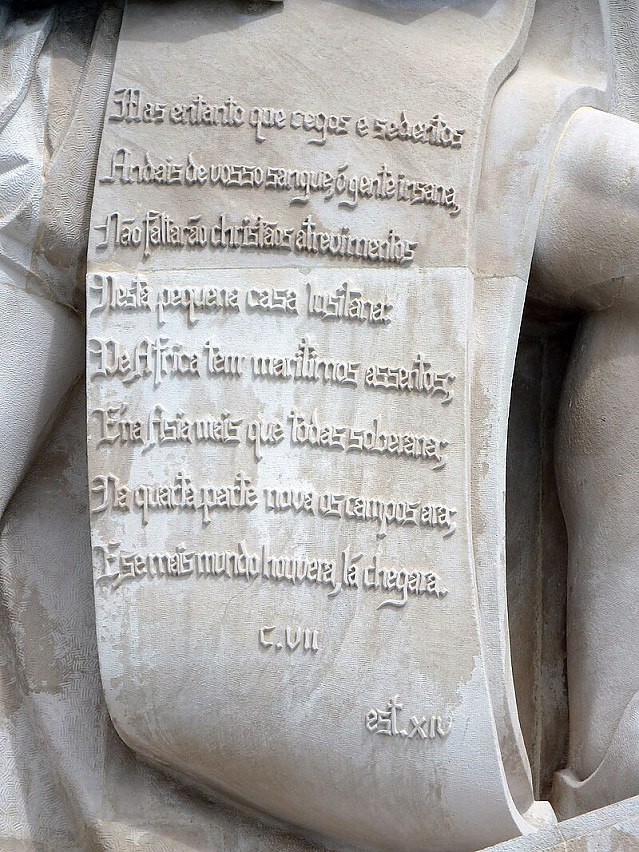 Mas entanto que cegos e sedentos
Andais de vosso sangue, ó gente insana,
Não faltarão christãos atrevimentos
Nesta pequena casa lusitana:
De Africa tem maritimos assentos;
E na Asia mais que todas soberana;
Na quarta parte nova os campos ara;
E se mais mundo houvera, lá chegara.
C.VII
est.XIV